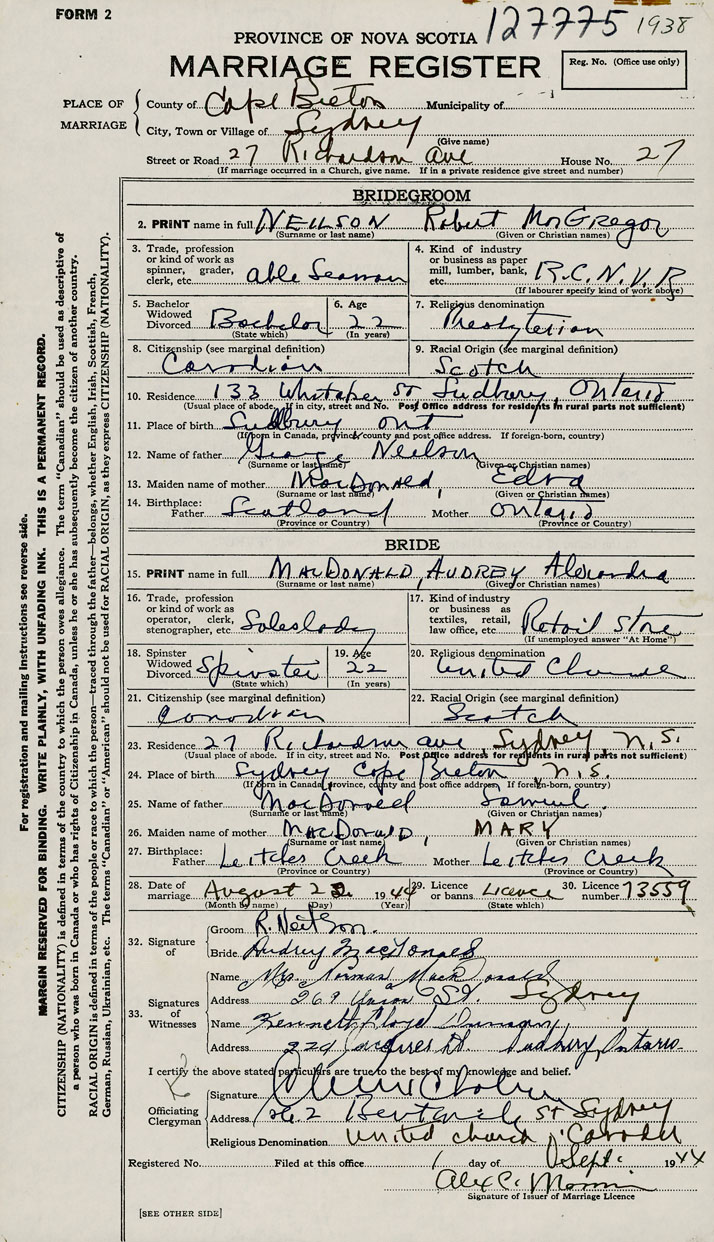 FORM 2
127775 1938
PROVINCE OF NOVA SCOTIA
MARRIAGE REGISTER
Reg. No. (Office use only)
PLACE OF MARRIAGE
County of Cape Breton Municipality of
City, Town or Village of Sydney
(Give name)
Street or Road 27 Richardson Ave House No. 27
(If marriage occurred in a Church, give name. If in a private residence give street and number)
BRIDEGROOM
2. PRINT name in full NEILSON Robert MacGregor
(Surname or last name) (Given or Christian names)
3. Trade, profession or kind of work as spinner, grader, clerk, etc. Able Seaman
4. Kind of industry or business as paper mill, lumber, bank, etc. R.C.N.V.R
(If labourer specify kind of work above)
5. Bachelor Widowed Divorced Bachelor
(State which)
6. Age 22
(In years)
7. Religious denomination Presbyterian
8. Citizenship (see marginal definition) Canadian
9. Racial Origin (see marginal definition) Scotch
10. Residence 133 Whitaker St Sudbury, Ontario
(Usual place of abode. If in city, street and No. Post Office address for residents in rural parts not sufficient)
11. Place of birth Sudbury Ont
(If born in Canada, province county and post office address. If foreign-born, country)
12. Name of father George Neilson
(Surname or last name) (Given or Christian names)
13. Maiden name of mother MacDonald, Edna
(Surname or last name) (Given or Christian names)
14. Birthplace: Father Scotland Mother Ontario
(Province or Country) (Province or Country)
BRIDE
15. PRINT name in full MACDONALD, AUDREY Alexandra
(Surname or last name) (Given or Christian names)
16. Trade, profession or kind of work as operator, clerk, stenographer, etc Saleslady
17. Kind of industry or business as textiles, retail, law office, etc. Retail Store
(If unemployed answer "At Home")
18. Spinster Widowed Divorced Spinster
(State which)
19. Age 22
(In years)
20. Religious denomination United Church
21. Citizenship (see marginal definition) Canadian
22. Racial Origin (see marginal definition) Scotch
23. Residence 27 Richardson Ave, Sydney N.S.
(Usual place of abode. If in city, street and No. Post Office address for residents in rural parts not sufficient)
24. Place of birth Sydney Cape Breton, N.S.
(If born in Canada, province, county and post office address. If foreign-born, country)
25. Name of father MacDonald Samuel.
(Surname or last name) (Given or Christian names)
26. Maiden name of mother MacDonald, MARY
(Surname or last name) (Given or Christian names)
27. Birthplace: Father Leitches Creek Mother Leitches Creek
(Province or Country) (Province or Country)
28. Date of marriage August 22 1944
(Month by name) (Day) (Year)
29. Licence or banns Licence
(State which)
30. Licence number 73559
32. Signature of
Groom R. Neilson.
Bride Audrey MacDonald
33. Signatures of Witnesses
Name Mrs. Norman MacDonald
Address 269 Union St. Sydney
Name Kenneth Floyd
Address 224 Jacques St. Sudbury, Ontario
I certify the above stated particulars are true to the best of my knowledge and belief.
Officiating Clergyman
Signature
Address 2 St Sydney
Religious Denomination United Church, Canada
Registered No. Filed at this office 1 day of Sept. 1944
Alex C.
Signature of Issuer of Marriage Licence
[SEE OTHER SIDE]
For registration and mailing instructions see reverse side.
MARGIN RESERVED FOR BINDING. WRITE PLAINLY, WITH UNFADING INK. THIS IS A PERMANENT RECORD.
CITIZENSHIP (NATIONALITY) is defined in terms of the country to which the person owes allegiance. The term "Canadian" should be used as descriptive of
a person who was born in Canada or who has rights of Citizenship in Canada, unless he or she has subsequently become the citizen of another country.
RACIAL ORIGIN is defined in terms of the people or race to which the person—traced through the father—belongs, whether English, Irish, Scottish, French,
German, Russian, Ukrainian, etc. The terms "Canadian" or "American" should not be used for RACIAL ORIGIN, as they express CITIZENSHIP (NATIONALITY).